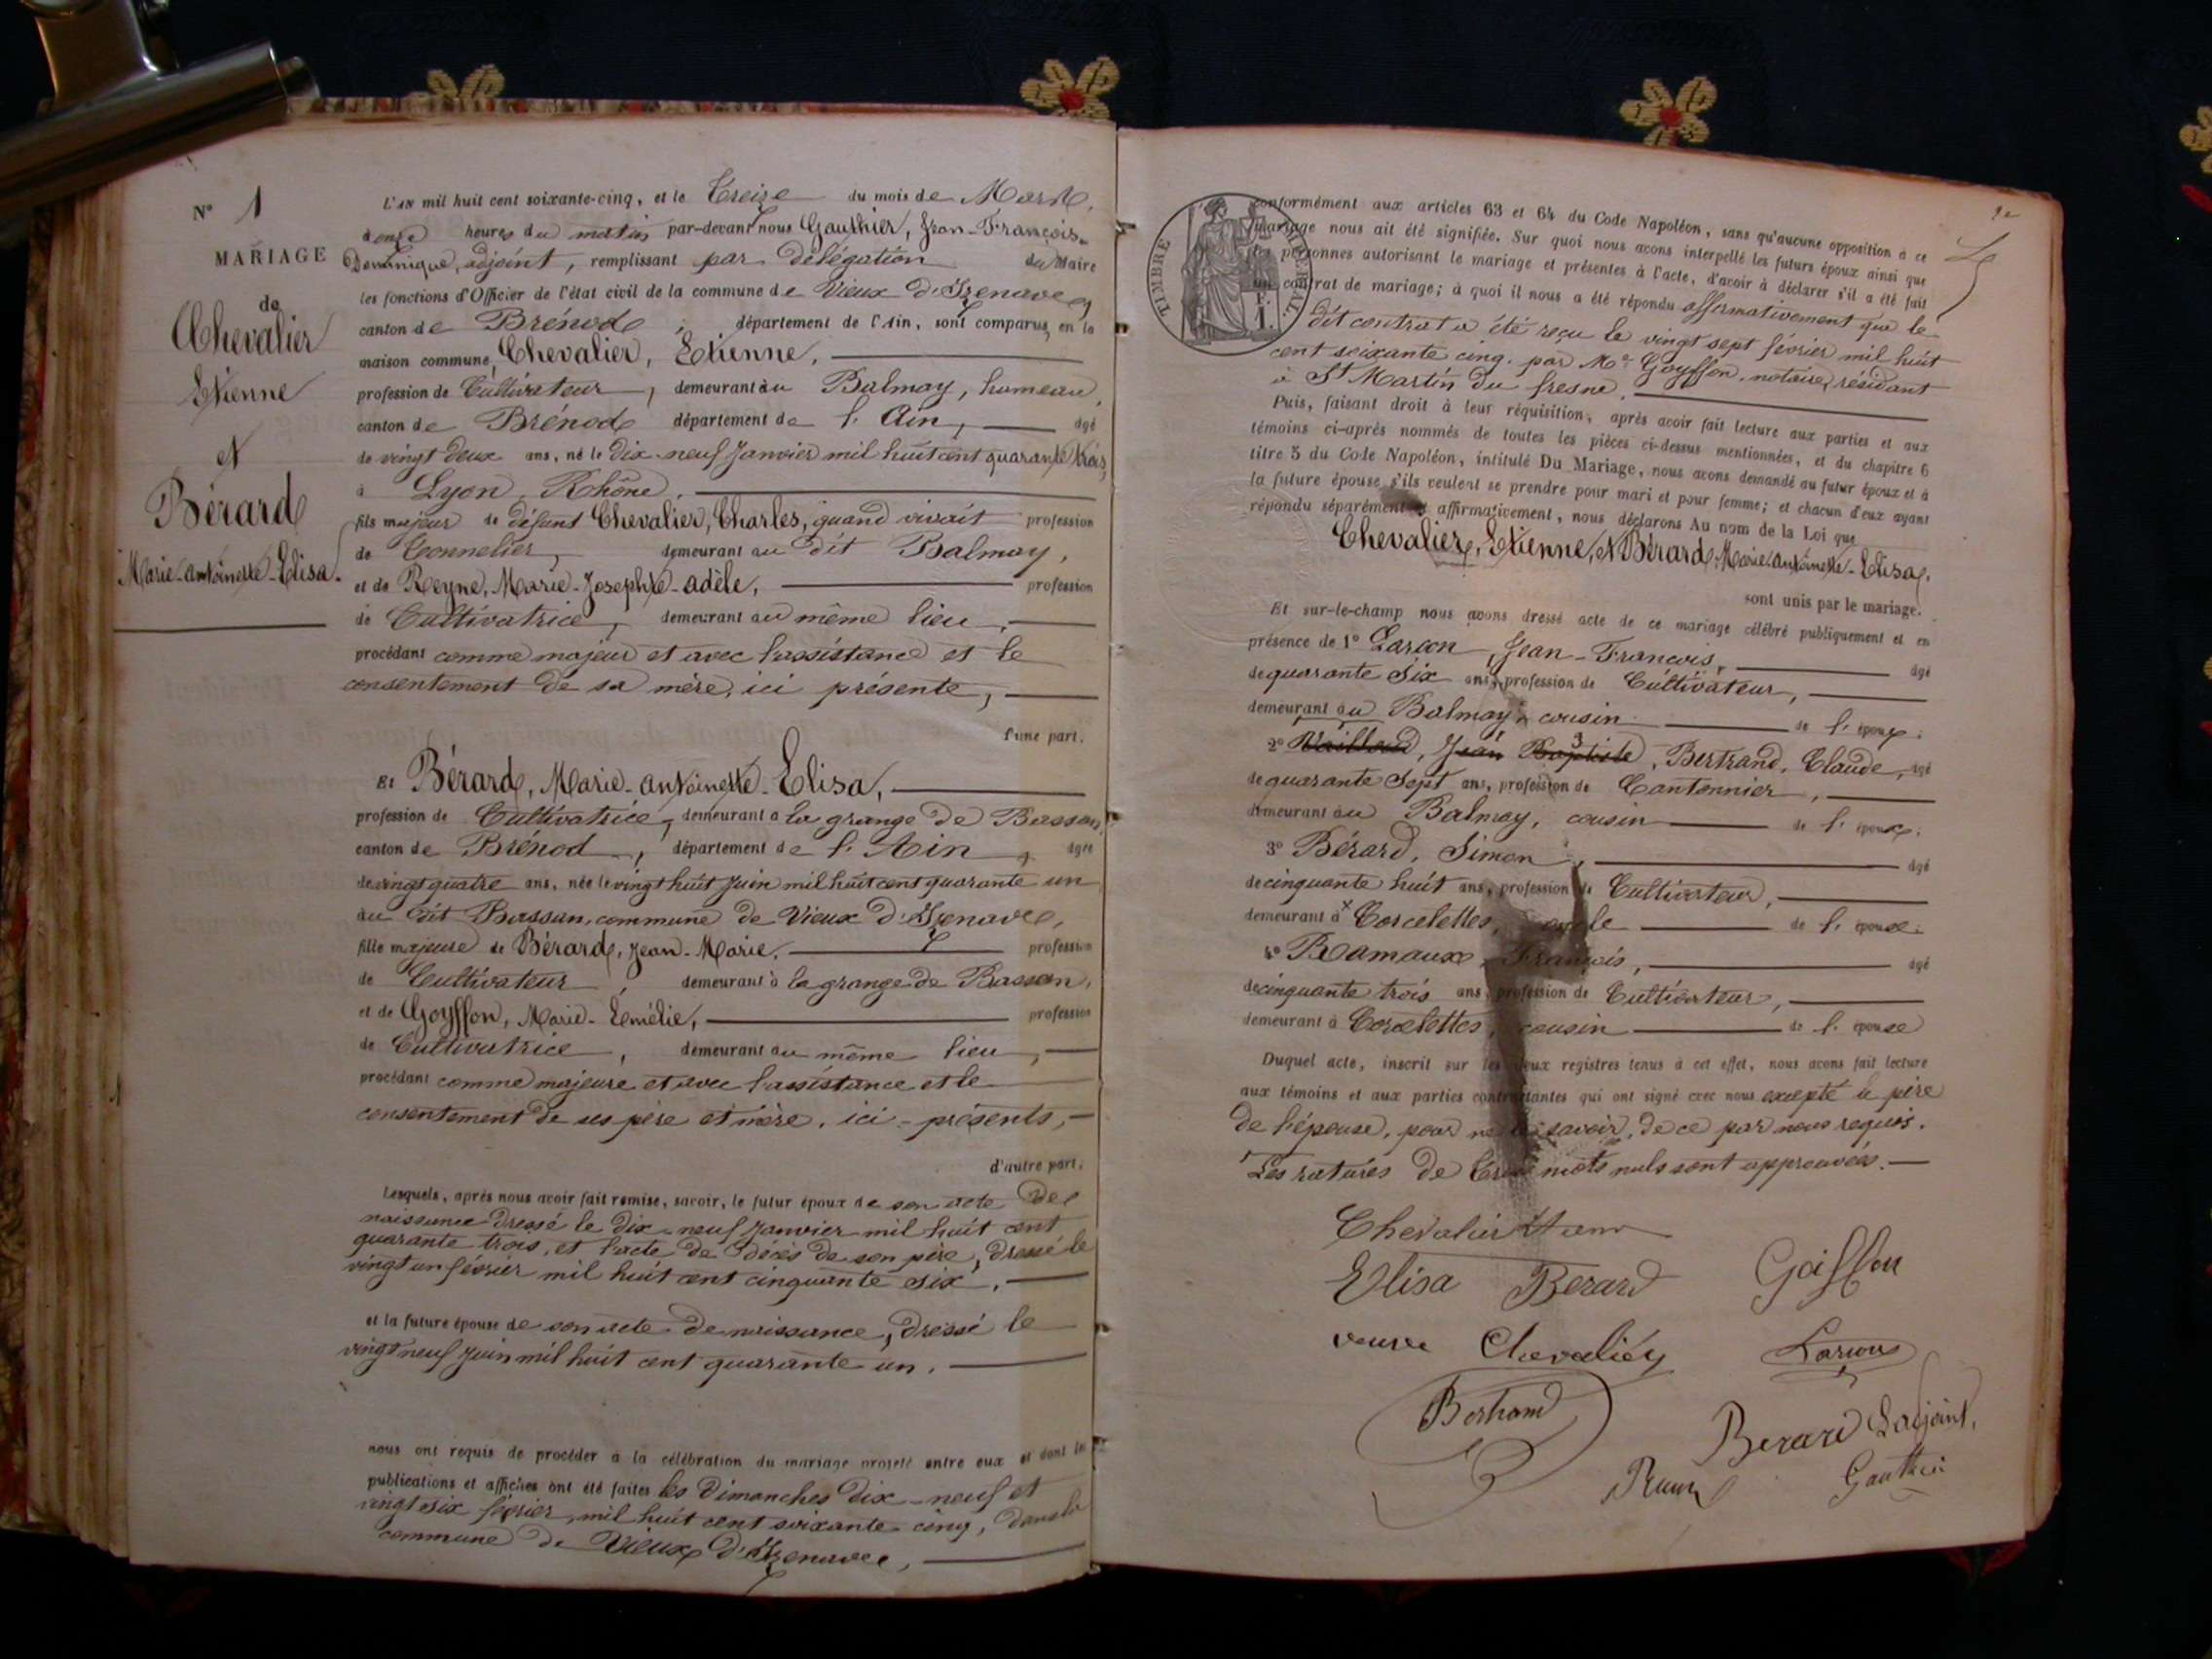 N° 1
MARIAGE
de
Chevalier
Etienne
et
Bérard
Marie-Antoinette-Elisa.
L'an mil huit cent soixante-cinq, et le Treize du mois de Mars,
heures du matin par-devant nous Gauthier, Jean-François-
Dominique, adjoint, remplissant par délégation du Maire
les fonctions d'Officier de l'état civil de la commune de Vieux d'Izenave,
canton de Brénod, département de l'Ain, sont comparus, en la
maison commune, Chevalier, Etienne,
profession de Cultivateur, demeurant au Balmay, hameau,
canton de Brénod département de l'Ain, âgé
de vingt deux ans, né le dix-neuf Janvier mil huit cent quarante trois,
à Lyon, Rhône,
fils majeur de défunt Chevalier, Charles, quand vivait profession
de Tonnelier, demeurant au dit Balmay,
et de Reyne, Marie-Josephte-adèle, profession
de Cultivatrice, demeurant au même lieu,
procédant comme majeur et avec l'assistance et le
consentement de sa mère, ici présente,
d'une part.
Et Bérard, Marie-Antoinette-Elisa,
profession de Cultivatrice, demeurant à la grange de Bassan,
canton de Brénod, département de l'Ain, âgée
de vingt quatre ans, née le vingt huit Juin mil huit cent quarante un
au dit Bassan, commune de Vieux d'Izenave,
fille majeure de Bérard, Jean-Marie, profession
de Cultivateur, demeurant à la grange de Bassan,
et de Goyffon, Marie-Emélie, profession
de Cultivatrice, demeurant au même lieu,
procédant comme majeure et avec l'assistance et le
consentement de ses père et mère, ici-présents,
d'autre part.
Lesquels, après nous avoir fait remise, savoir, le futur époux de son acte de
naissance dressé le dix-neuf Janvier mil huit cent
quarante trois, et l'acte de décès de son père, dressé le
vingt un février mil huit cent cinquante six,
et la future épouse de son acte de naissance, dressé le
vingt neuf Juin mil huit cent quarante un.
nous ont requis de procéder à la célébration du mariage projeté entre eux et dont les
publications et affiches ont été faites les Dimanches dix-neuf et
vingt-six février mil huit cent soixante cinq, dans la
commune de Vieux d'Izenave,
TIMBRE IMPÉRIAL
1 F.
2e
conformément aux articles 63 et 64 du Code Napoléon, sans qu'aucune opposition à ce
mariage nous ait été signifiée. Sur quoi nous avons interpellé les futurs époux ainsi que
les personnes autorisant le mariage et présentes à l'acte, d'avoir à déclarer s'il a été fait
un contrat de mariage; à quoi il nous a été répondu affirmativement que le
dit contrat a été reçu le vingt sept février mil huit
cent soixante cinq, par Me Goyffon, notaire, résidant
à St Martin du fresne.
Puis, faisant droit à leur réquisition, après avoir fait lecture aux parties et aux
témoins ci-après nommés de toutes les pièces ci-dessus mentionnées, et du chapitre 6
titre 5 du Code Napoléon, intitulé Du Mariage, nous avons demandé au futur époux et à
la future épouse s'ils veulent se prendre pour mari et pour femme; et chacun d'eux ayant
répondu séparément et affirmativement, nous déclarons Au nom de la Loi que
Chevalier, Etienne, et Bérard, Marie-Antoinette-Elisa,
sont unis par le mariage.
Et sur-le-champ nous avons dressé acte de ce mariage célébré publiquement et en
présence de 1° Larçon, Jean-François, âgé
de quarante six ans, profession de Cultivateur,
demeurant au Balmay, cousin de l'époux;
2° Jean Baptiste, Bertrand, Claude, âgé
de quarante sept ans, profession de Cantonnier,
demeurant au Balmay, cousin de l'époux;
3° Bérard, Simon, âgé
de cinquante huit ans, profession de Cultivateur,
demeurant à Corcelettes, oncle de l'épouse;
4° Ramaux, François, âgé
de cinquante trois ans, profession de Cultivateur,
demeurant à Corcelettes, cousin de l'épouse
Duquel acte, inscrit sur les deux registres tenus à cet effet, nous avons fait lecture
aux témoins et aux parties contractantes qui ont signé avec nous excepté le père
de l'épouse, pour ne le savoir, de ce par nous requis.
Les ratures de trois mots nuls sont approuvées.
Chevalier
Elisa Berard Goiffon
veuve Chevaliéy Larson
Bertrand
Berard L'adjoint,
Gauthier